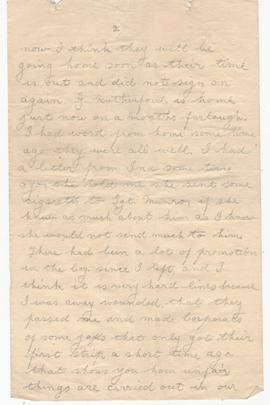 2
now I think they will be
going home soon as their time
is out and did not sign on
again. J. Rutherford is home
just now on a months furlough.
I had word from home some time
ago they were all well. I had
a letter from Ina some time
ago she told me she sent some
cigaretts to Sgt. Munroe if she
knew as much about him as I know
she would not send much to him.
There had been a lot of promotion
in the boy. since I left, and I
think it is very hard lines because
I was away wounded, that they
passed me and made Corporals
of some gaffs that only got their
first strip a short time ago
that shows you how unfair
things are carried out in our